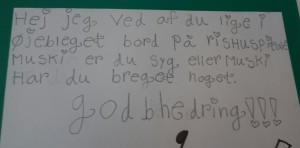 Hej jeg ved af du lige i
Øjebleget bord på rishuspitwe
Muski er du syg eller Muski
Har du breget noget.
god bhedring!!!